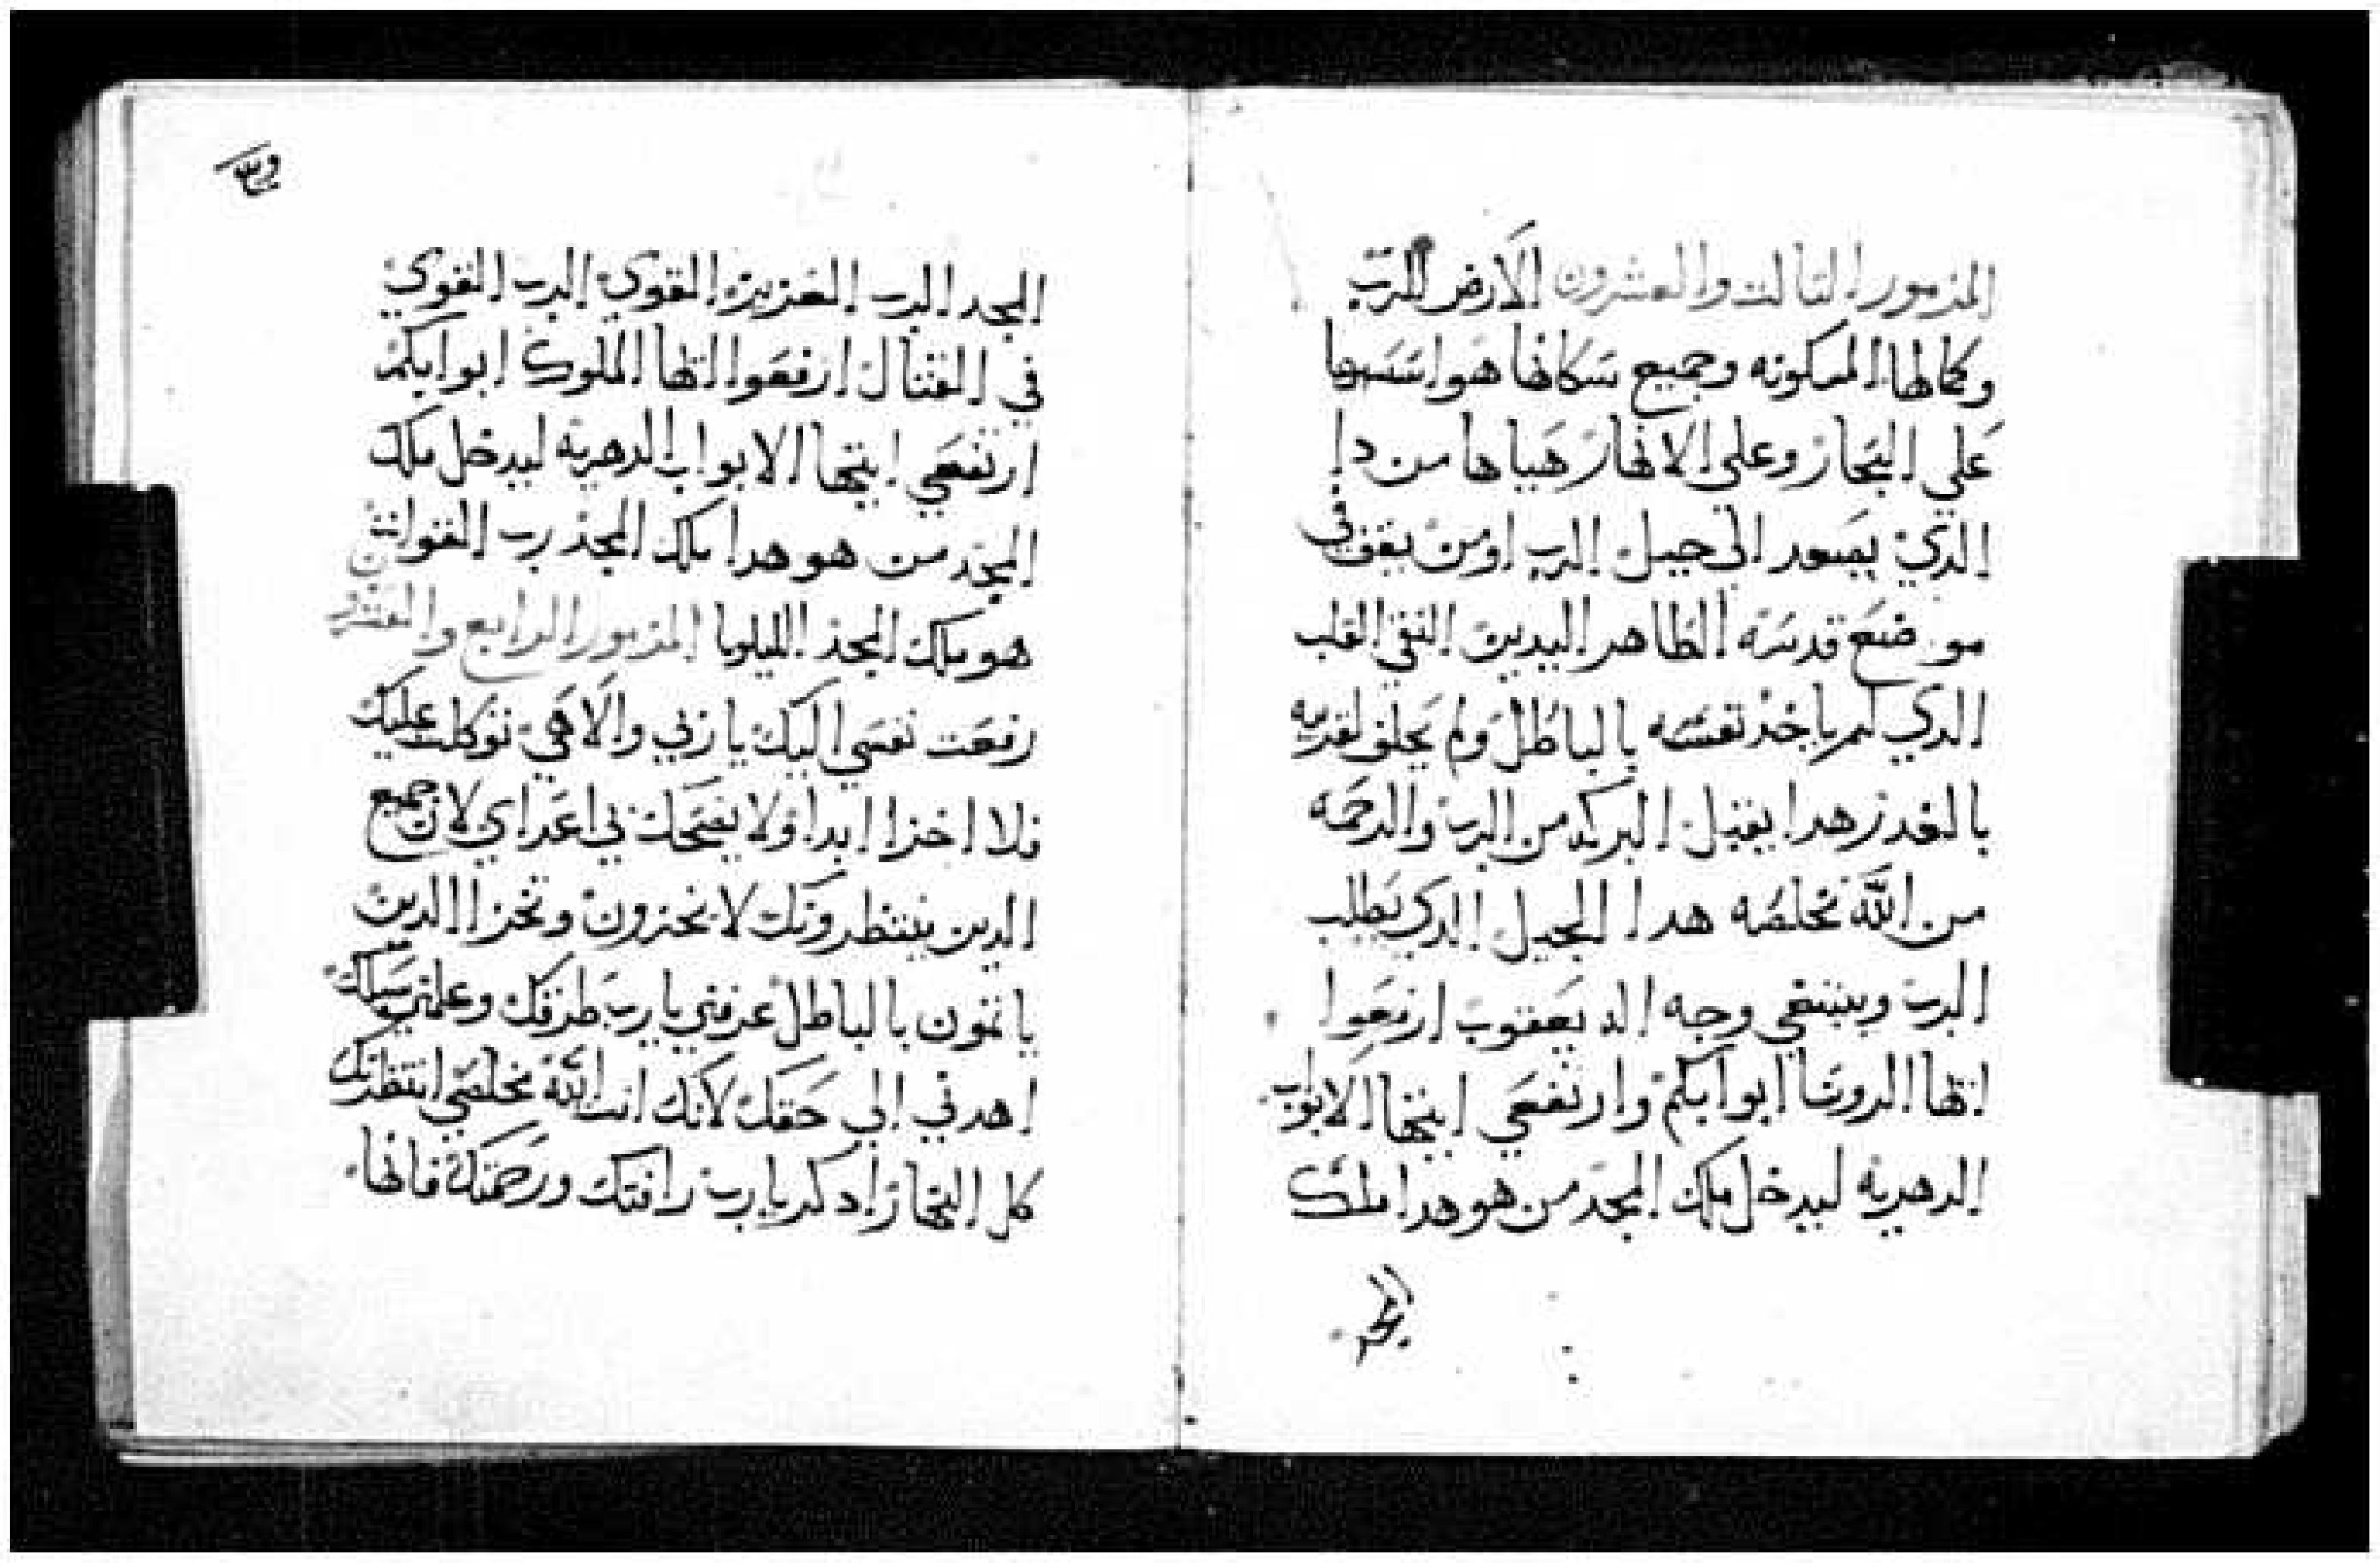 المزمور التالت والعشرون الارض للرب
وكمالها المسكونه وجميع سكانها هو اسسها
علي البحار وعلي الانهار هياها من دا
الدي يصعد الي جبل الرب او من يقف في
موضع قدسه الطاهر اليدين النقي القلب
الدي لم ياخد نفسه بالباطل ولم يحلف لقريبه
بالغدر هدا يقبل البركه من الرب والرحمه
من الله مخلصه هدا الجيل الدي يطلب
الرب ويبتغي وجه اله يعقوب ارفعوا
ايها الروسا ابوابكم وارتفعي ايتها الابواب
الدهريه ليدخل ملك المجد من هو هدا ملك
المجد
المجد الرب العزيز القوي الرب القوي
في القتال ارفعوا ايها الملوك ابوابكم
ارتفعي ايتها الابواب الدهريه ليدخل ملك
المجد من هو هدا ملك المجد رب القوات
هو ملك المجد الليلويا المزمور الرابع والعشرون
رفعت نفسي اليك يا ربي والاهي توكلت عليك
فلا اخزا ابدا ولا يضحك بي اعداي لان جميع
الدين ينتظرونك لا يخزون وتخزا الدين
ياتمون بالباطل عرفني يا رب طرقك وعلمني سبلك
اهدني الي حقك لانك انت الله مخلصي انتظرتك
كل النهار ادكر يا رب رافتك ورحمتك فانها